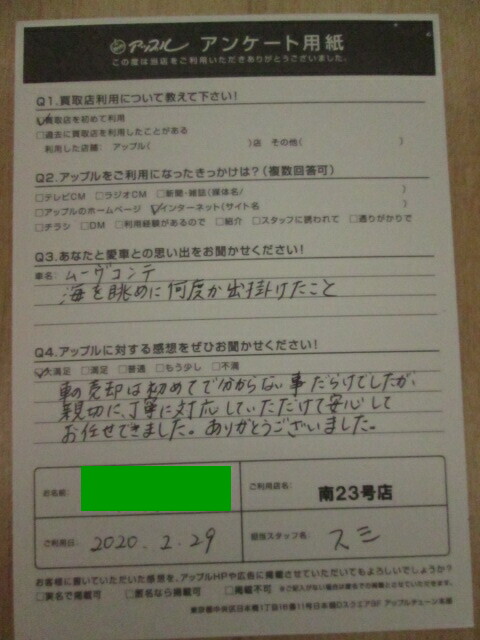 アップル アンケート用紙
この度は当店をご利用いただきありがとうございました。
Q1.買取店利用について教えて下さい!
☑買取店を初めて利用
□過去に買取店を利用したことがある
利用した店舗: アップル( )店 その他( )
Q2.アップルをご利用になったきっかけは?(複数回答可)
□テレビCM □ラジオCM □新聞・雑誌(媒体名/ )
□アップルのホームページ ☑インターネット(サイト名 )
□チラシ □DM □利用経験があるので □紹介 □スタッフに誘われて □通りがかりで
Q3.あなたと愛車との思い出をお聞かせください!
車名: ムーヴコンテ
海を眺めに何度か出掛けたこと
Q4.アップルに対する感想をぜひお聞かせください!
☑大満足 □満足 □普通 □もう少し □不満
車の売却は初めてで分からない事だらけでしたが、
親切に、丁寧に対応していただけて安心して
お任せできました。ありがとうございました。
お名前:
ご利用店名: 南23号店
ご利用日: 2020.2.29
担当スタッフ名: スミ
お客様に書いていただいた感想を、アップルHPや広告に掲載させていただいてもよろしいでしょうか?
□実名で掲載可 □匿名なら掲載可 □掲載不可